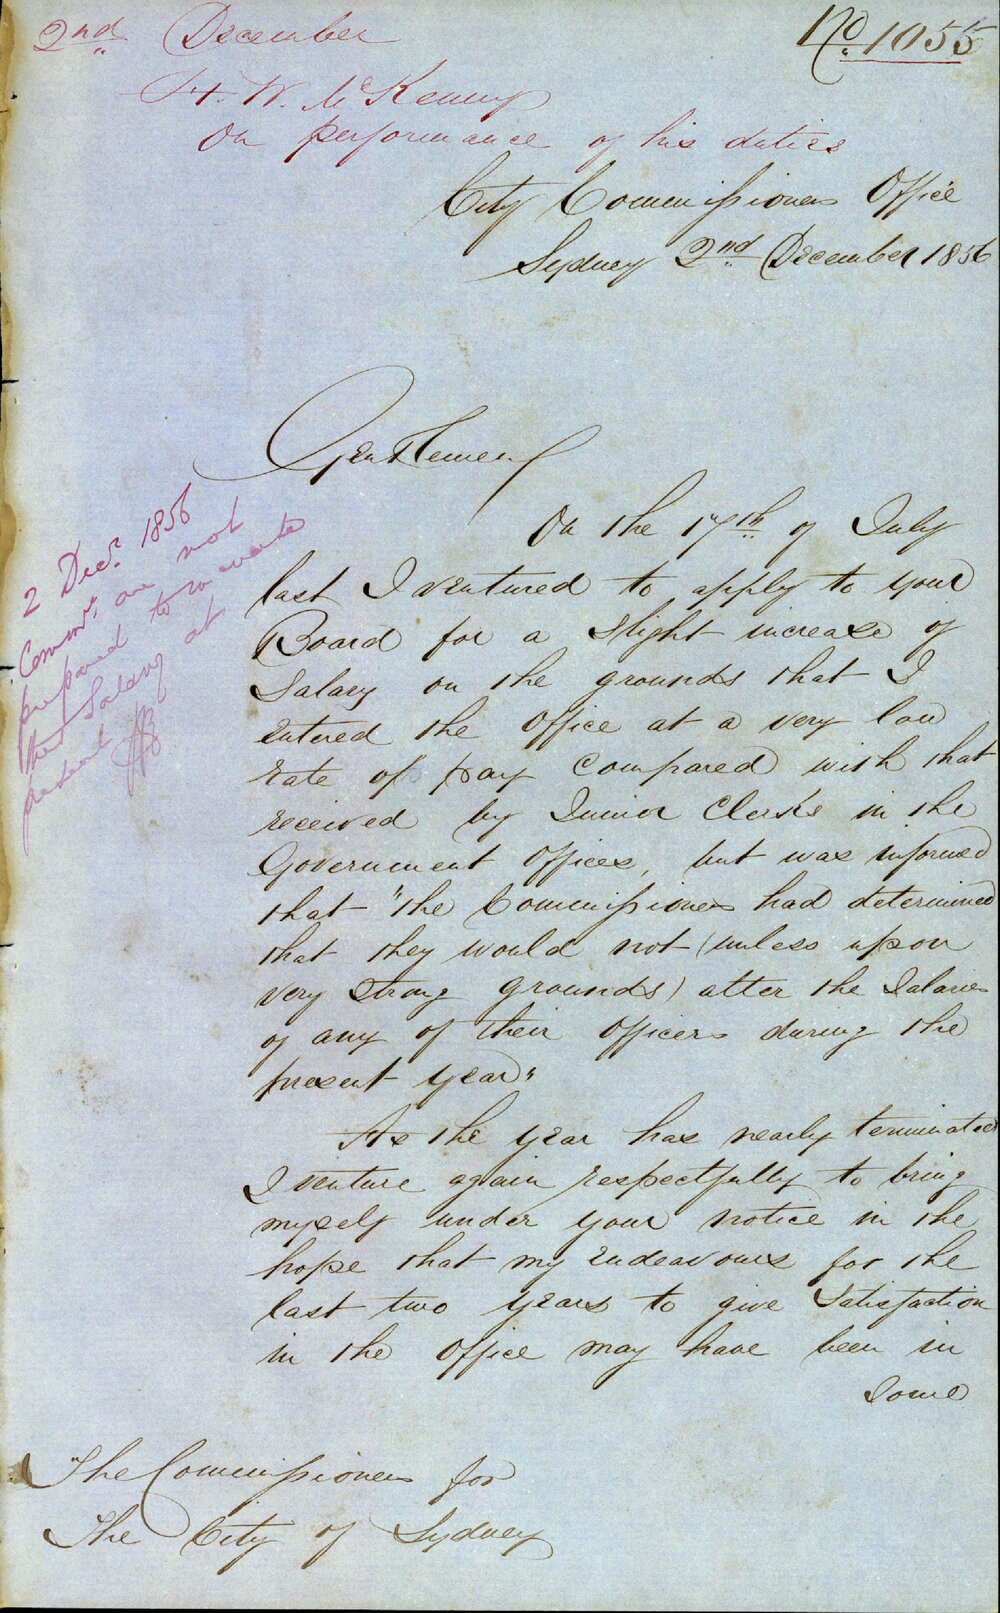 2nd December
No. 1055
H. W. McKenny
On performance of his duties
City Commissioners Office
Sydney 2nd December 1856
Gentlemen
On the 17th of July
last I ventured to apply to your
Board for a slight increase of
Salary on the grounds that I
entered the Office at a very low
rate of pay compared with that
received by Junior Clerks in the
Government Offices, but was informed
that "the Commissioners had determined
that they would not (unless upon
very strong grounds) alter the Salaries
of any of their Officers during the
present year"
As the year has nearly terminated
I venture again respectfully to bring
myself under your notice in the
hope that my endeavours for the
last two years to give Satisfaction
in the Office may have been in
some
The Commissioners for
The City of Sydney
2 Decr. 1856
Commrs. are not
prepared to increase
the Salary at
present